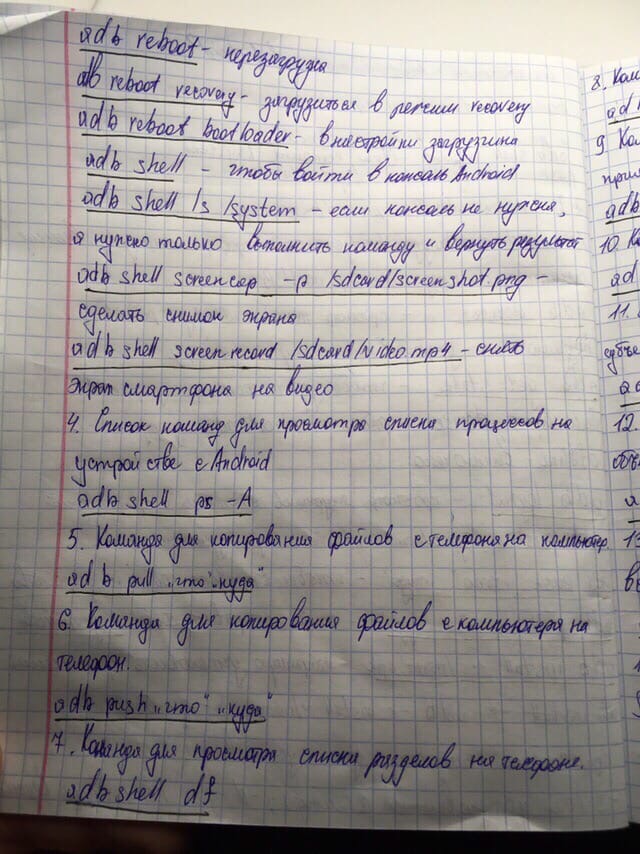 adb reboot - перезагрузка
adb reboot recovery - загрузиться в режим recovery
adb reboot bootloader - в настройки загрузчика
adb shell - чтобы войти в консоль Android
adb shell ls /system - если консоль не нужна,
а нужно только выполнить команду и вернуть результат
adb shell screencap -p /sdcard/screenshot.png -
сделать снимок экрана
adb shell screenrecord /sdcard/video.mp4 - снять
экран смартфона на видео
4. Список команд для просмотра списка процессов на
устройстве с Android
adb shell ps -A
5. Команда для копирования файлов с телефона на компьютер.
adb pull "что" "куда"
6. Команда для копирования файлов с компьютера на
телефон.
adb push "что" "куда"
7. Команда для просмотра списка разделов на телефоне.
adb shell df
8. Ком
ad
9. Ко
при
adb
10. К
ad
11.
субъе
ad
12.
объ
a
13